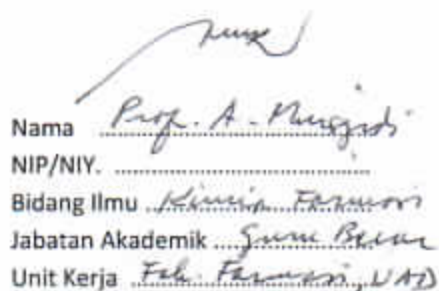 Nama Prof. A. Mursyidi
NIP/NIY. ........................
Bidang Ilmu Kimia Farmasi
Jabatan Akademik Guru Besar
Unit Kerja Fak. Farmasi, UAD